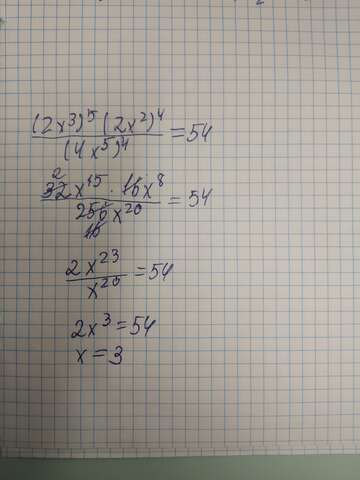 (2x³)⁵ (2x²)⁴ / (4x⁵)⁴ = 54
2
32x¹⁵ · 16x⁸ / 256x²⁰ = 54
16
2x²³ / x²⁰ = 54
2x³ = 54
x = 3